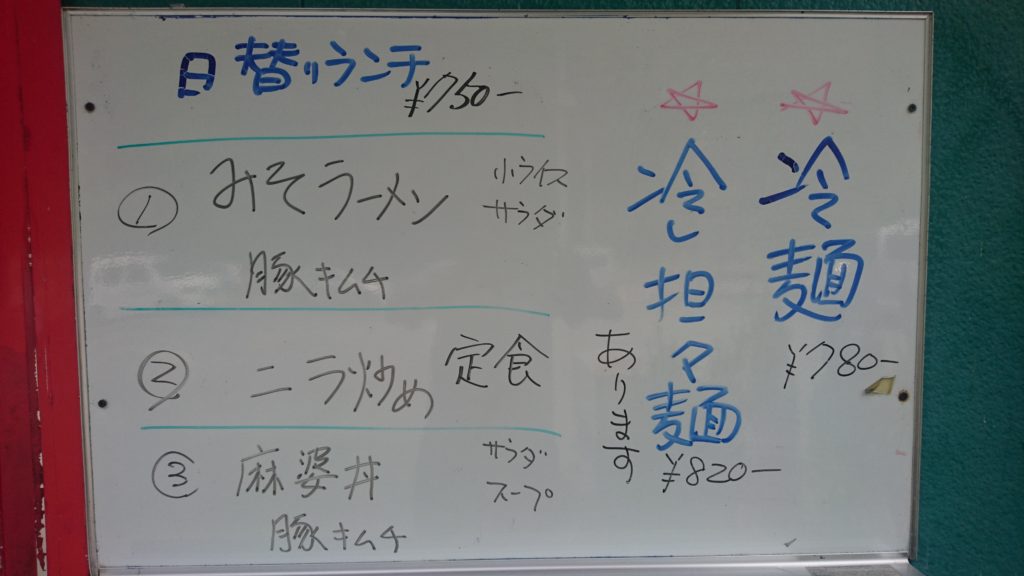 日替りランチ
¥750-
① みそラーメン
小ライス
サラダ
豚キムチ
② ニラ炒め定食
③ 麻婆丼
サラダ
スープ
豚キムチ
☆冷麺
¥780-
☆冷し担々麺
¥820-
あります